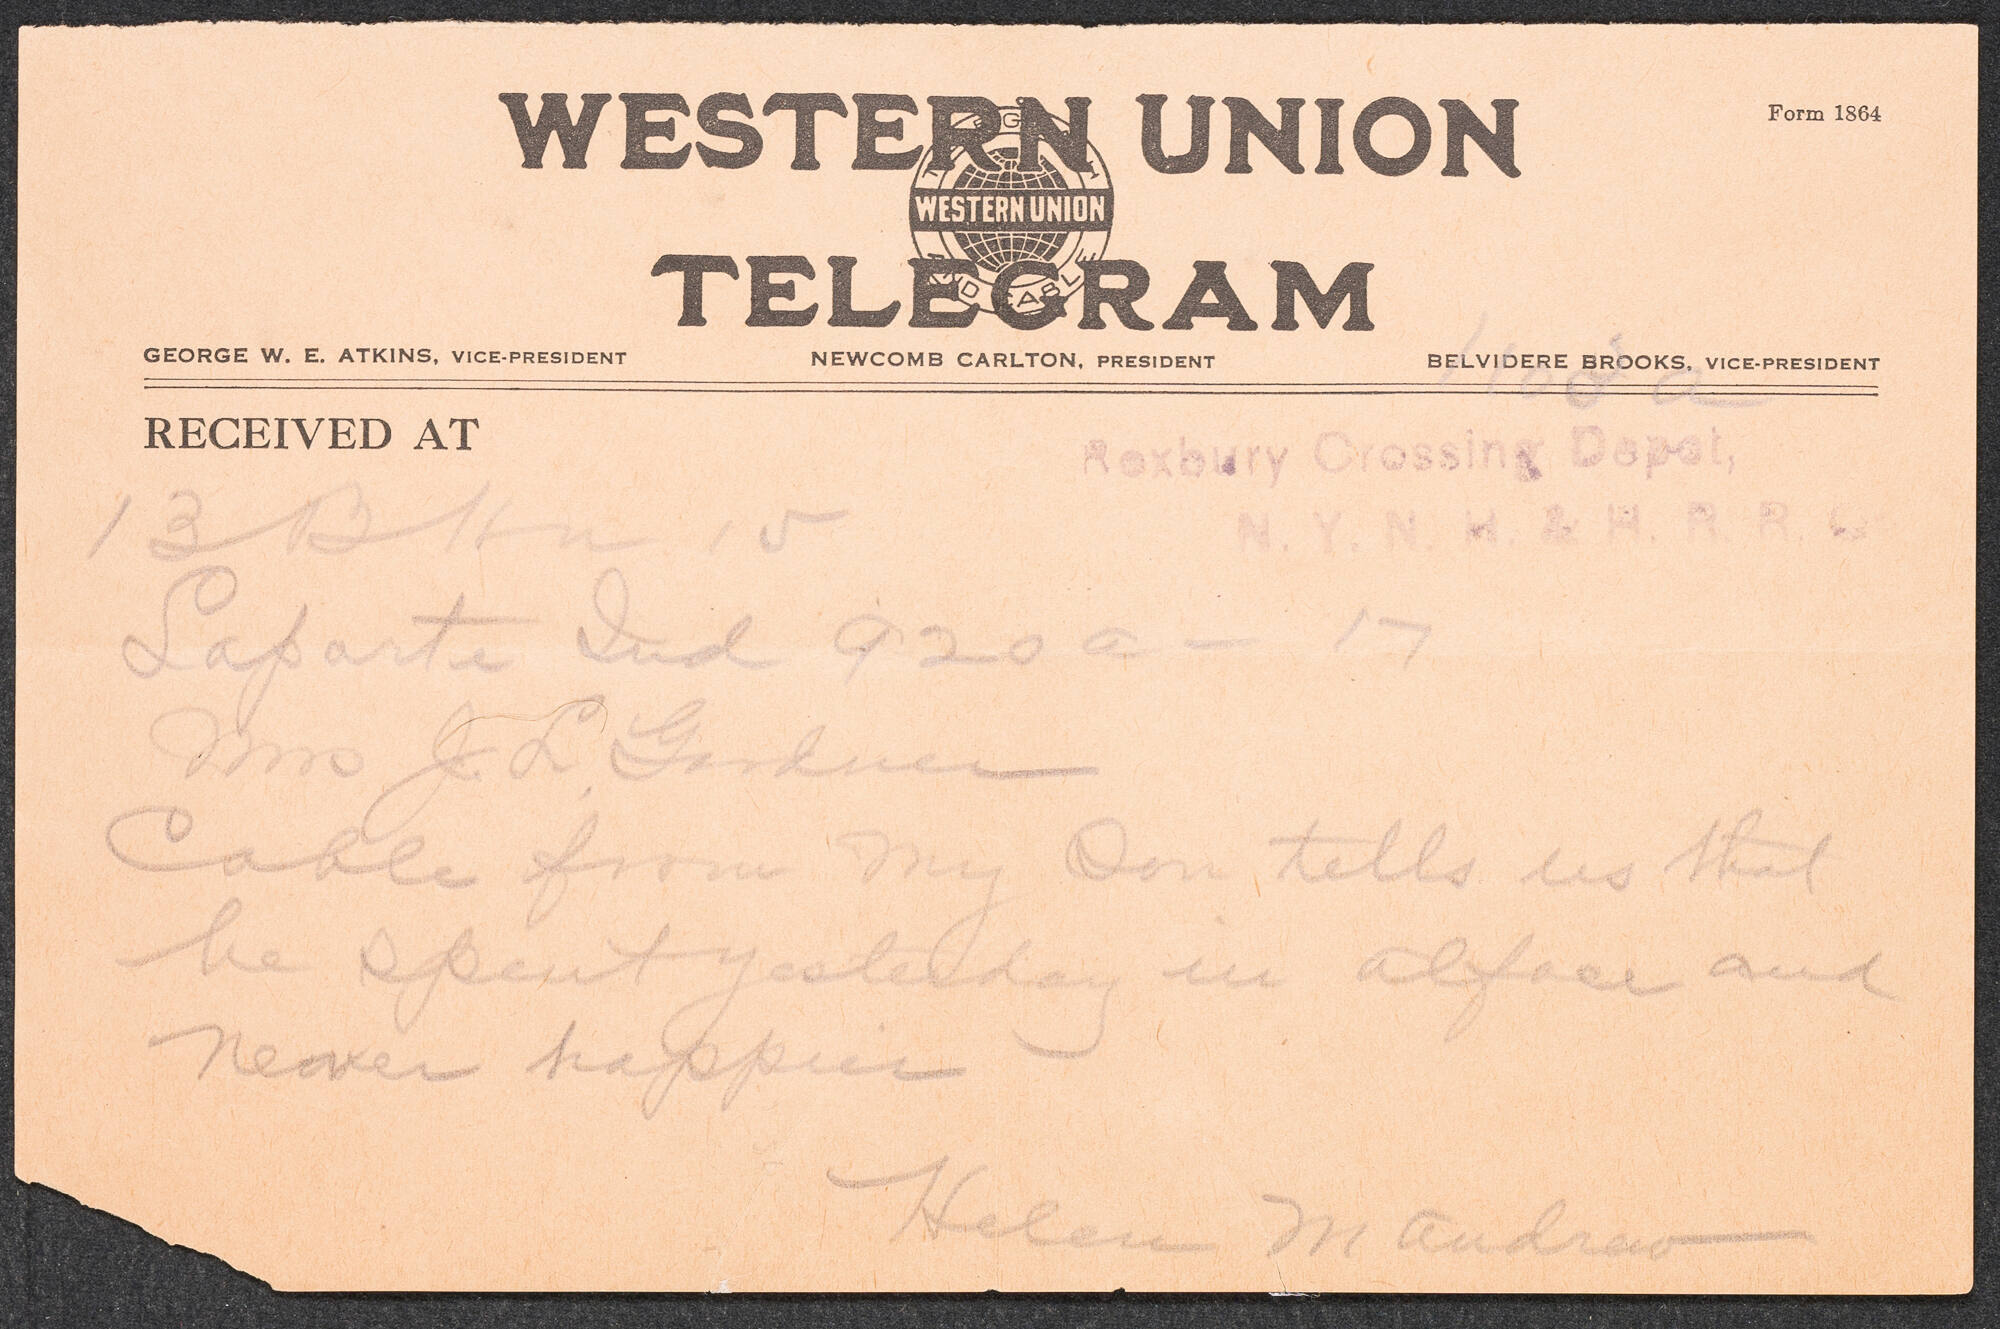 WESTERN UNION
Form 1864
TELEGRAPH
WESTERN UNION
AND CABLE
TELEGRAM
GEORGE W. E. ATKINS, VICE-PRESIDENT NEWCOMB CARLTON, PRESIDENT BELVIDERE BROOKS, VICE-PRESIDENT
RECEIVED AT
Roxbury Crossing Depot,
N. Y. N. H. & H. R. R.
13 B 15
Laporte Ind 920 a - 17
Mrs J. L Gardner
Cable from my Son tells us that
he spent yesterday in alface and
never happier
Helen M Andrew